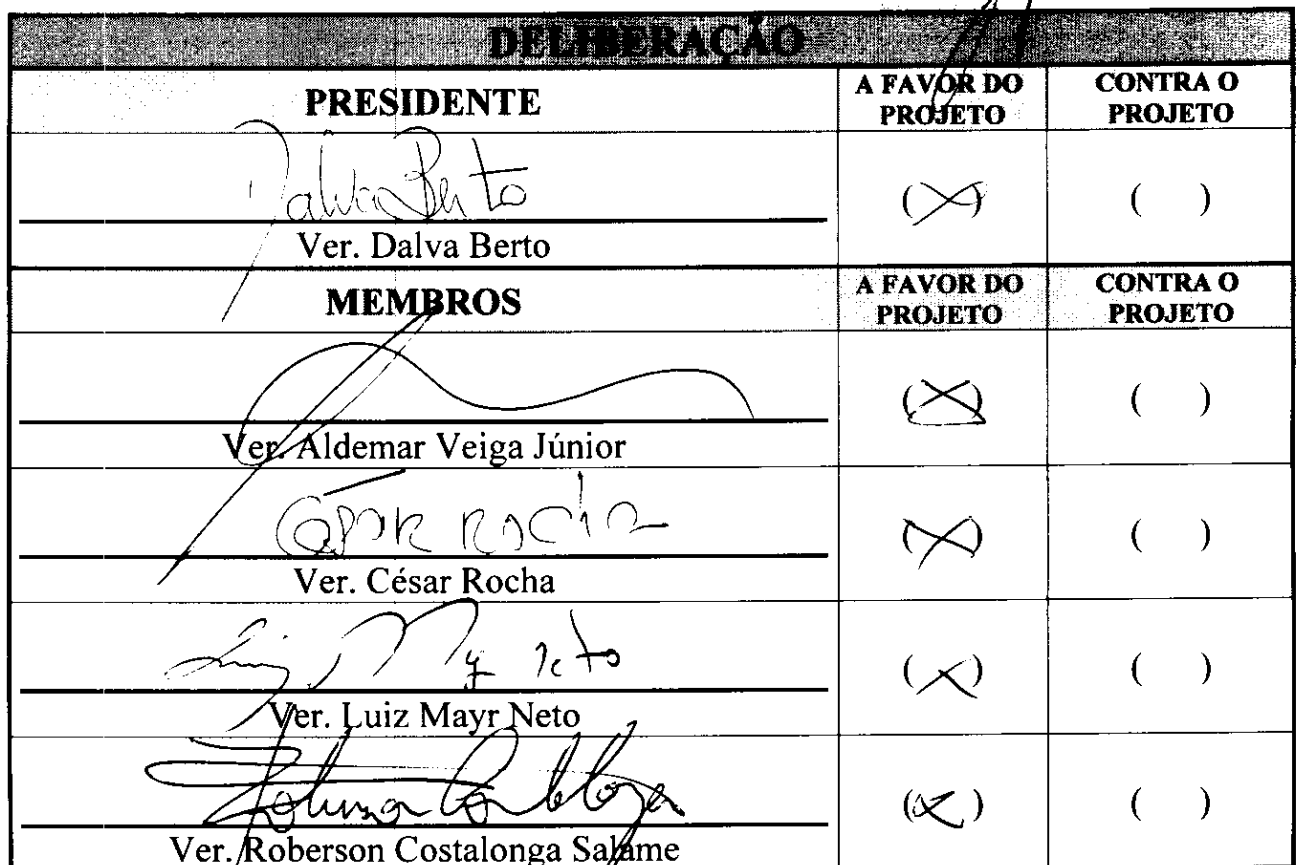 DELIBERAÇÃO
PRESIDENTE A FAVOR DO PROJETO CONTRA O PROJETO
Dalva Berto (X) ( )
Ver. Dalva Berto
MEMBROS A FAVOR DO PROJETO CONTRA O PROJETO
(X) ( )
Ver. Aldemar Veiga Júnior
César Rocha (X) ( )
Ver. César Rocha
(X) ( )
Ver. Luiz Mayr Neto
(X) ( )
Ver. Roberson Costalonga Salame